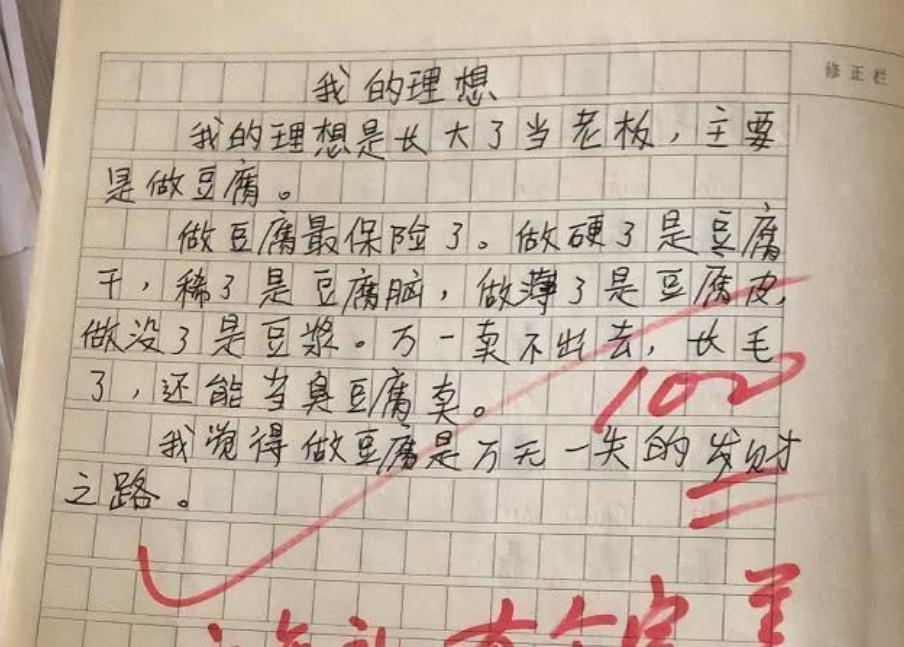 修正栏
我的理想
我的理想是长大了当老板，主要
是做豆腐。
做豆腐最保险了。做硬了是豆腐
干，稀了是豆腐脑，做薄了是豆腐皮，
做没了是豆浆。万一卖不出去，长毛
了，还能当臭豆腐卖。
我觉得做豆腐是万无一失的发财
之路。
100